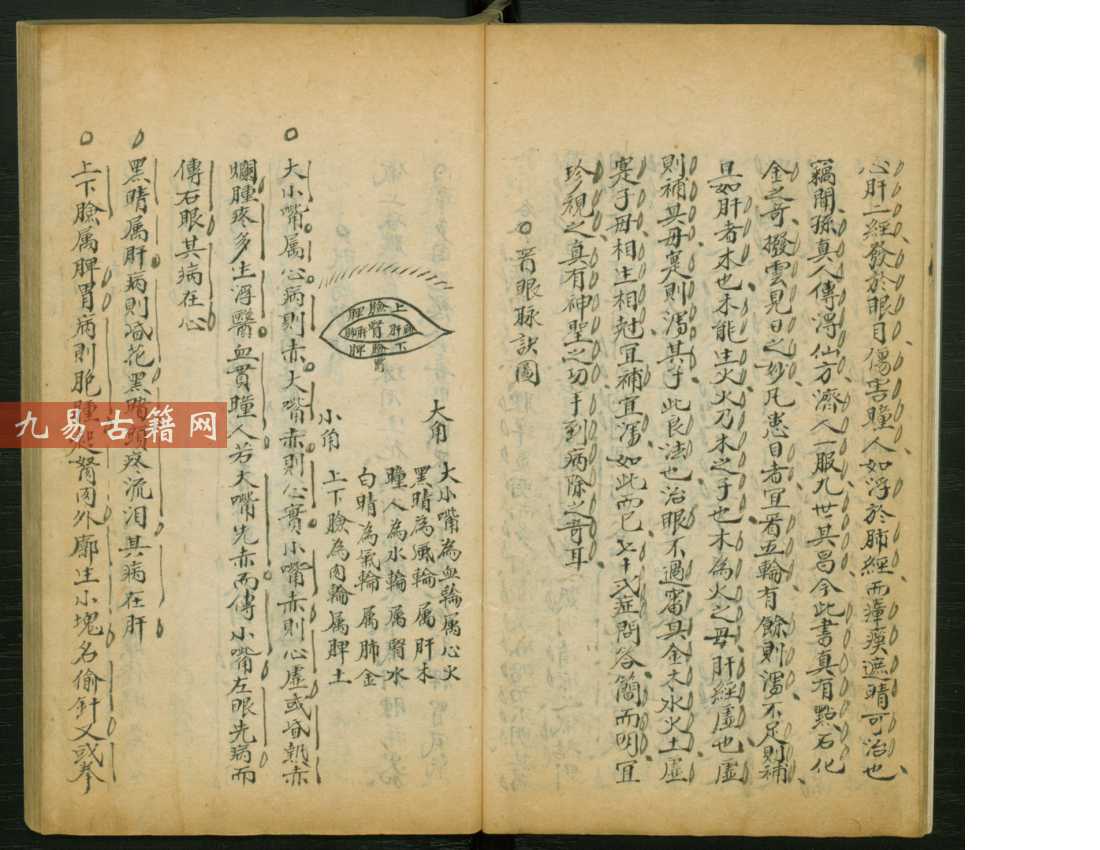 心肝二經發於眼目傷害瞳人如浮於肺經而瘴瘼遮睛可治也
竊聞孫真人傳淂仙方濟人一服九世其昌今此書真有點石化
金之竒撥雲見日之妙凡患目者宜看五輪有餘則瀉不足則補
且如肝者木也木能生火火乃木之子也木為火之母肝經虛也虛
則補其母寔則瀉其子此良法也治眼不過審其金木水火土虛
寔子母相生相尅宜補宜瀉如此而已七十弍症問答簡而明宜
珍視之真有神聖之功手到病除之竒耳
看眼脉訣圖
上臉脾
肝腎
下臉脾
大角
小角
大小嘴為血輪属心火
黑睛為風輪属肝木
瞳人為水輪属腎水
白睛為氣輪属肺金
上下臉為肉輪属脾土
大小嘴属心病則赤大嘴赤則心實小嘴赤則心虛或昏熱赤
爛腫疼多生浮醫血貫瞳人若大嘴先赤而傳小嘴左眼先病而
傳右眼其病在心
黑睛属肝病則 花黑暗頭疼流泪其病在肝
上下臉属脾胃病則胞腫 肉外廓生小塊名偷針又或拳
九易古籍网